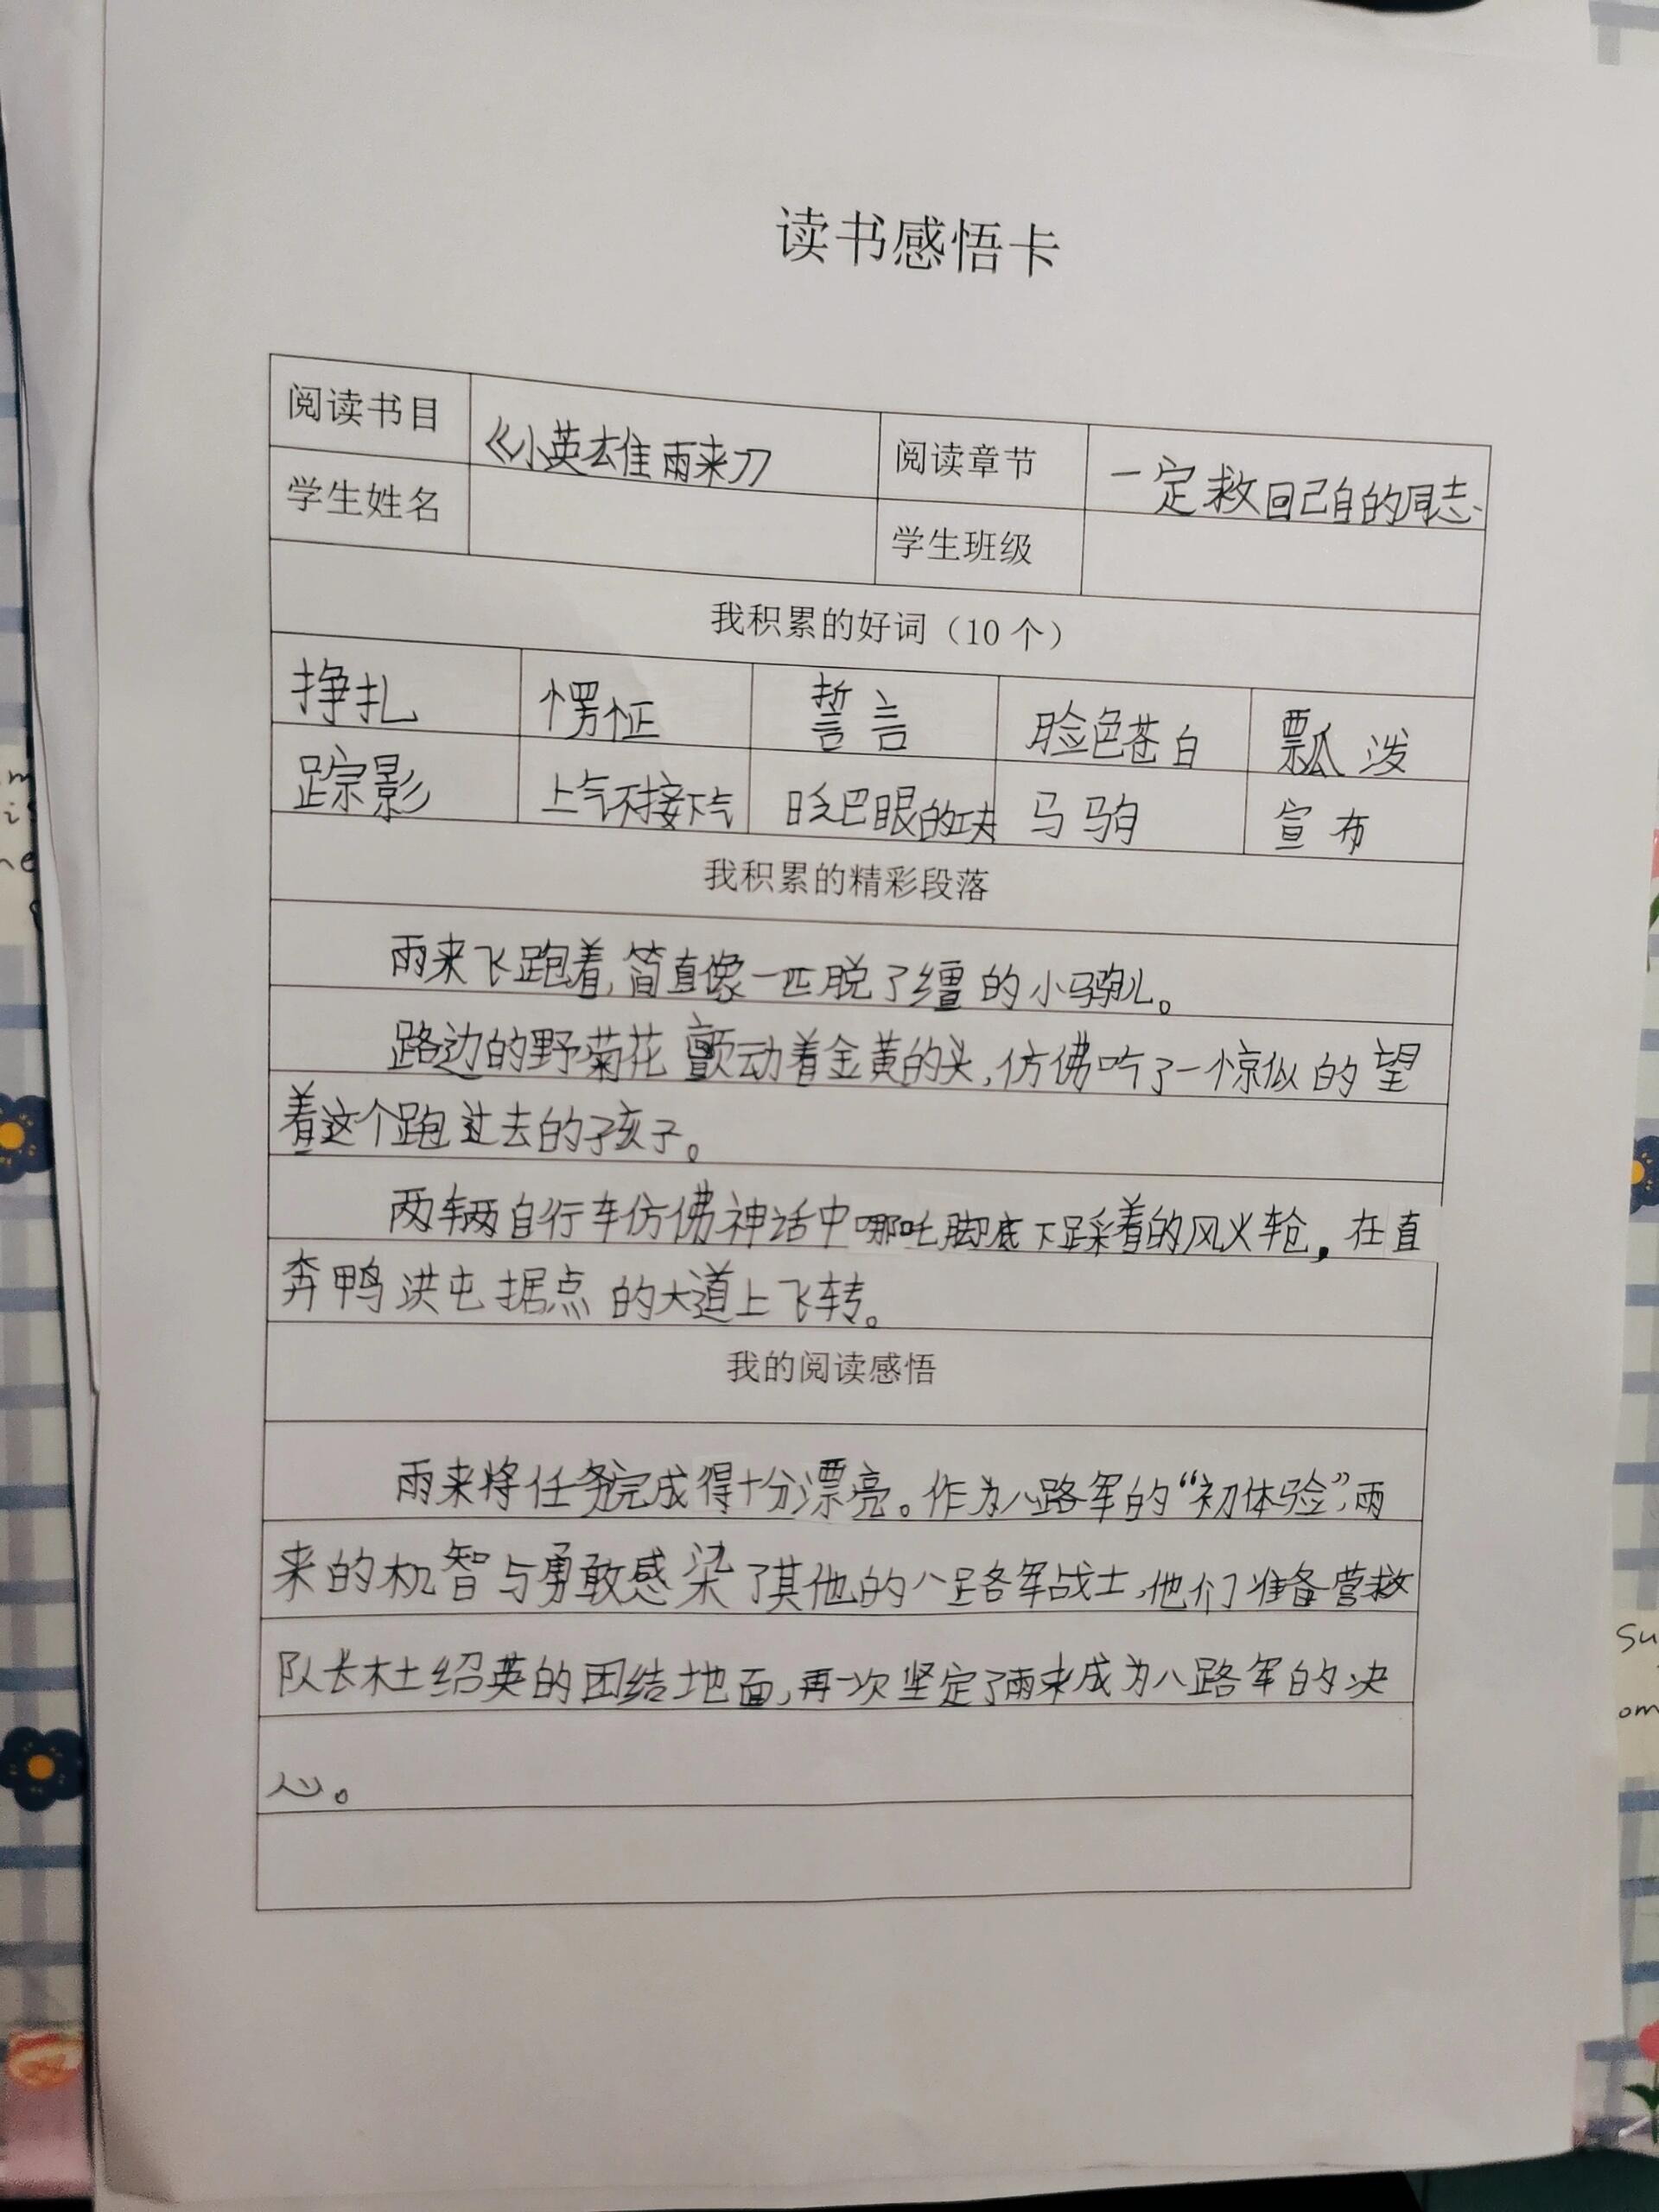 读书感悟卡
阅读书目 《小英雄雨来》 阅读章节 一定救回己自的同志
学生姓名 学生班级
我积累的好词（10 个）
挣扎 愣怔 誓言 脸色苍白 瓢泼
踪影 上气不接下气 眨巴眼的功夫 马驹 宣布
我积累的精彩段落
雨来飞跑着,简直像一匹脱了缰的小驹儿。
路边的野菊花颤动着金黄的头,仿佛吃了一惊似的望
着这个跑过去的孩子。
两辆自行车仿佛神话中哪吒脚底下踩着的风火轮,在直
奔鸭洪屯据点的大道上飞转。
我的阅读感悟
雨来将任务完成得十分漂亮。作为八路军的“初体验”,雨
来的机智与勇敢感染了其他的八路军战士,他们准备营救
队长杜绍英的团结地面,再一次坚定了雨来成为八路军的决
心。
m
i
ne
su
om